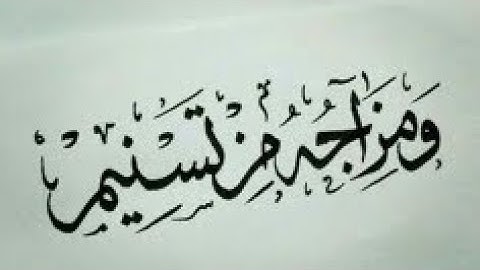 وَمِزَاجُهُ مِن تَسْنِيمٍ